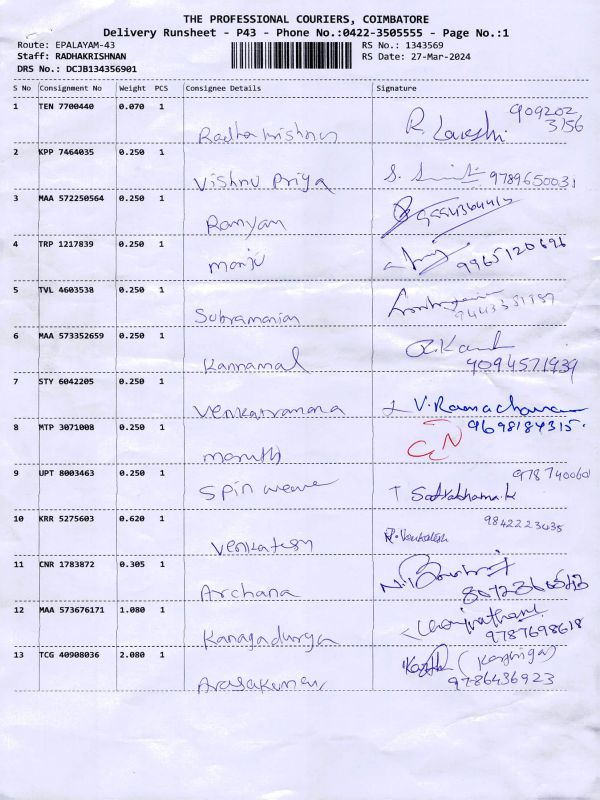 THE PROFESSIONAL COURIERS, COIMBATORE
Delivery Runsheet - P43 - Phone No.:0422-3505555 - Page No.:1
Route: EPALAYAM-43 RS No.: 1343569
Staff: RADHAKRISHNAN RS Date: 27-Mar-2024
DRS No.: DCJB134356901
S No Consignment No Weight PCS Consignee Details Signature
1 TEN 7700440 0.070 1 909202
Radha krishnan R. 3156
2 KPP 7464035 0.250 1
Vishnu Priya S. 9789650031
3 MAA 572250564 0.250 1
Ramyam
4 TRP 1217839 0.250 1
manju 9965120626
5 TVL 4603538 0.250 1
Subramanian
6 MAA 573352659 0.250 1
Kannamal 9094571939
7 STY 6042205 0.250 1
Venkatramana V. Ramachandran
8 MTP 3071008 0.250 1 9698184315.
Maruthi GN
9 UPT 8003463 0.250 1 978740060
Spin weave T Sathabhama.k
10 KRR 5275603 0.620 1 9842223435
Venkatesh R. Venkatesh
11 CNR 1783872 0.305 1
Archana
12 MAA 573676171 1.080 1
Kanagadurga 9787698618
13 TCG 40908036 2.080 1 (Karthiga)
Arasakumar 9786436923